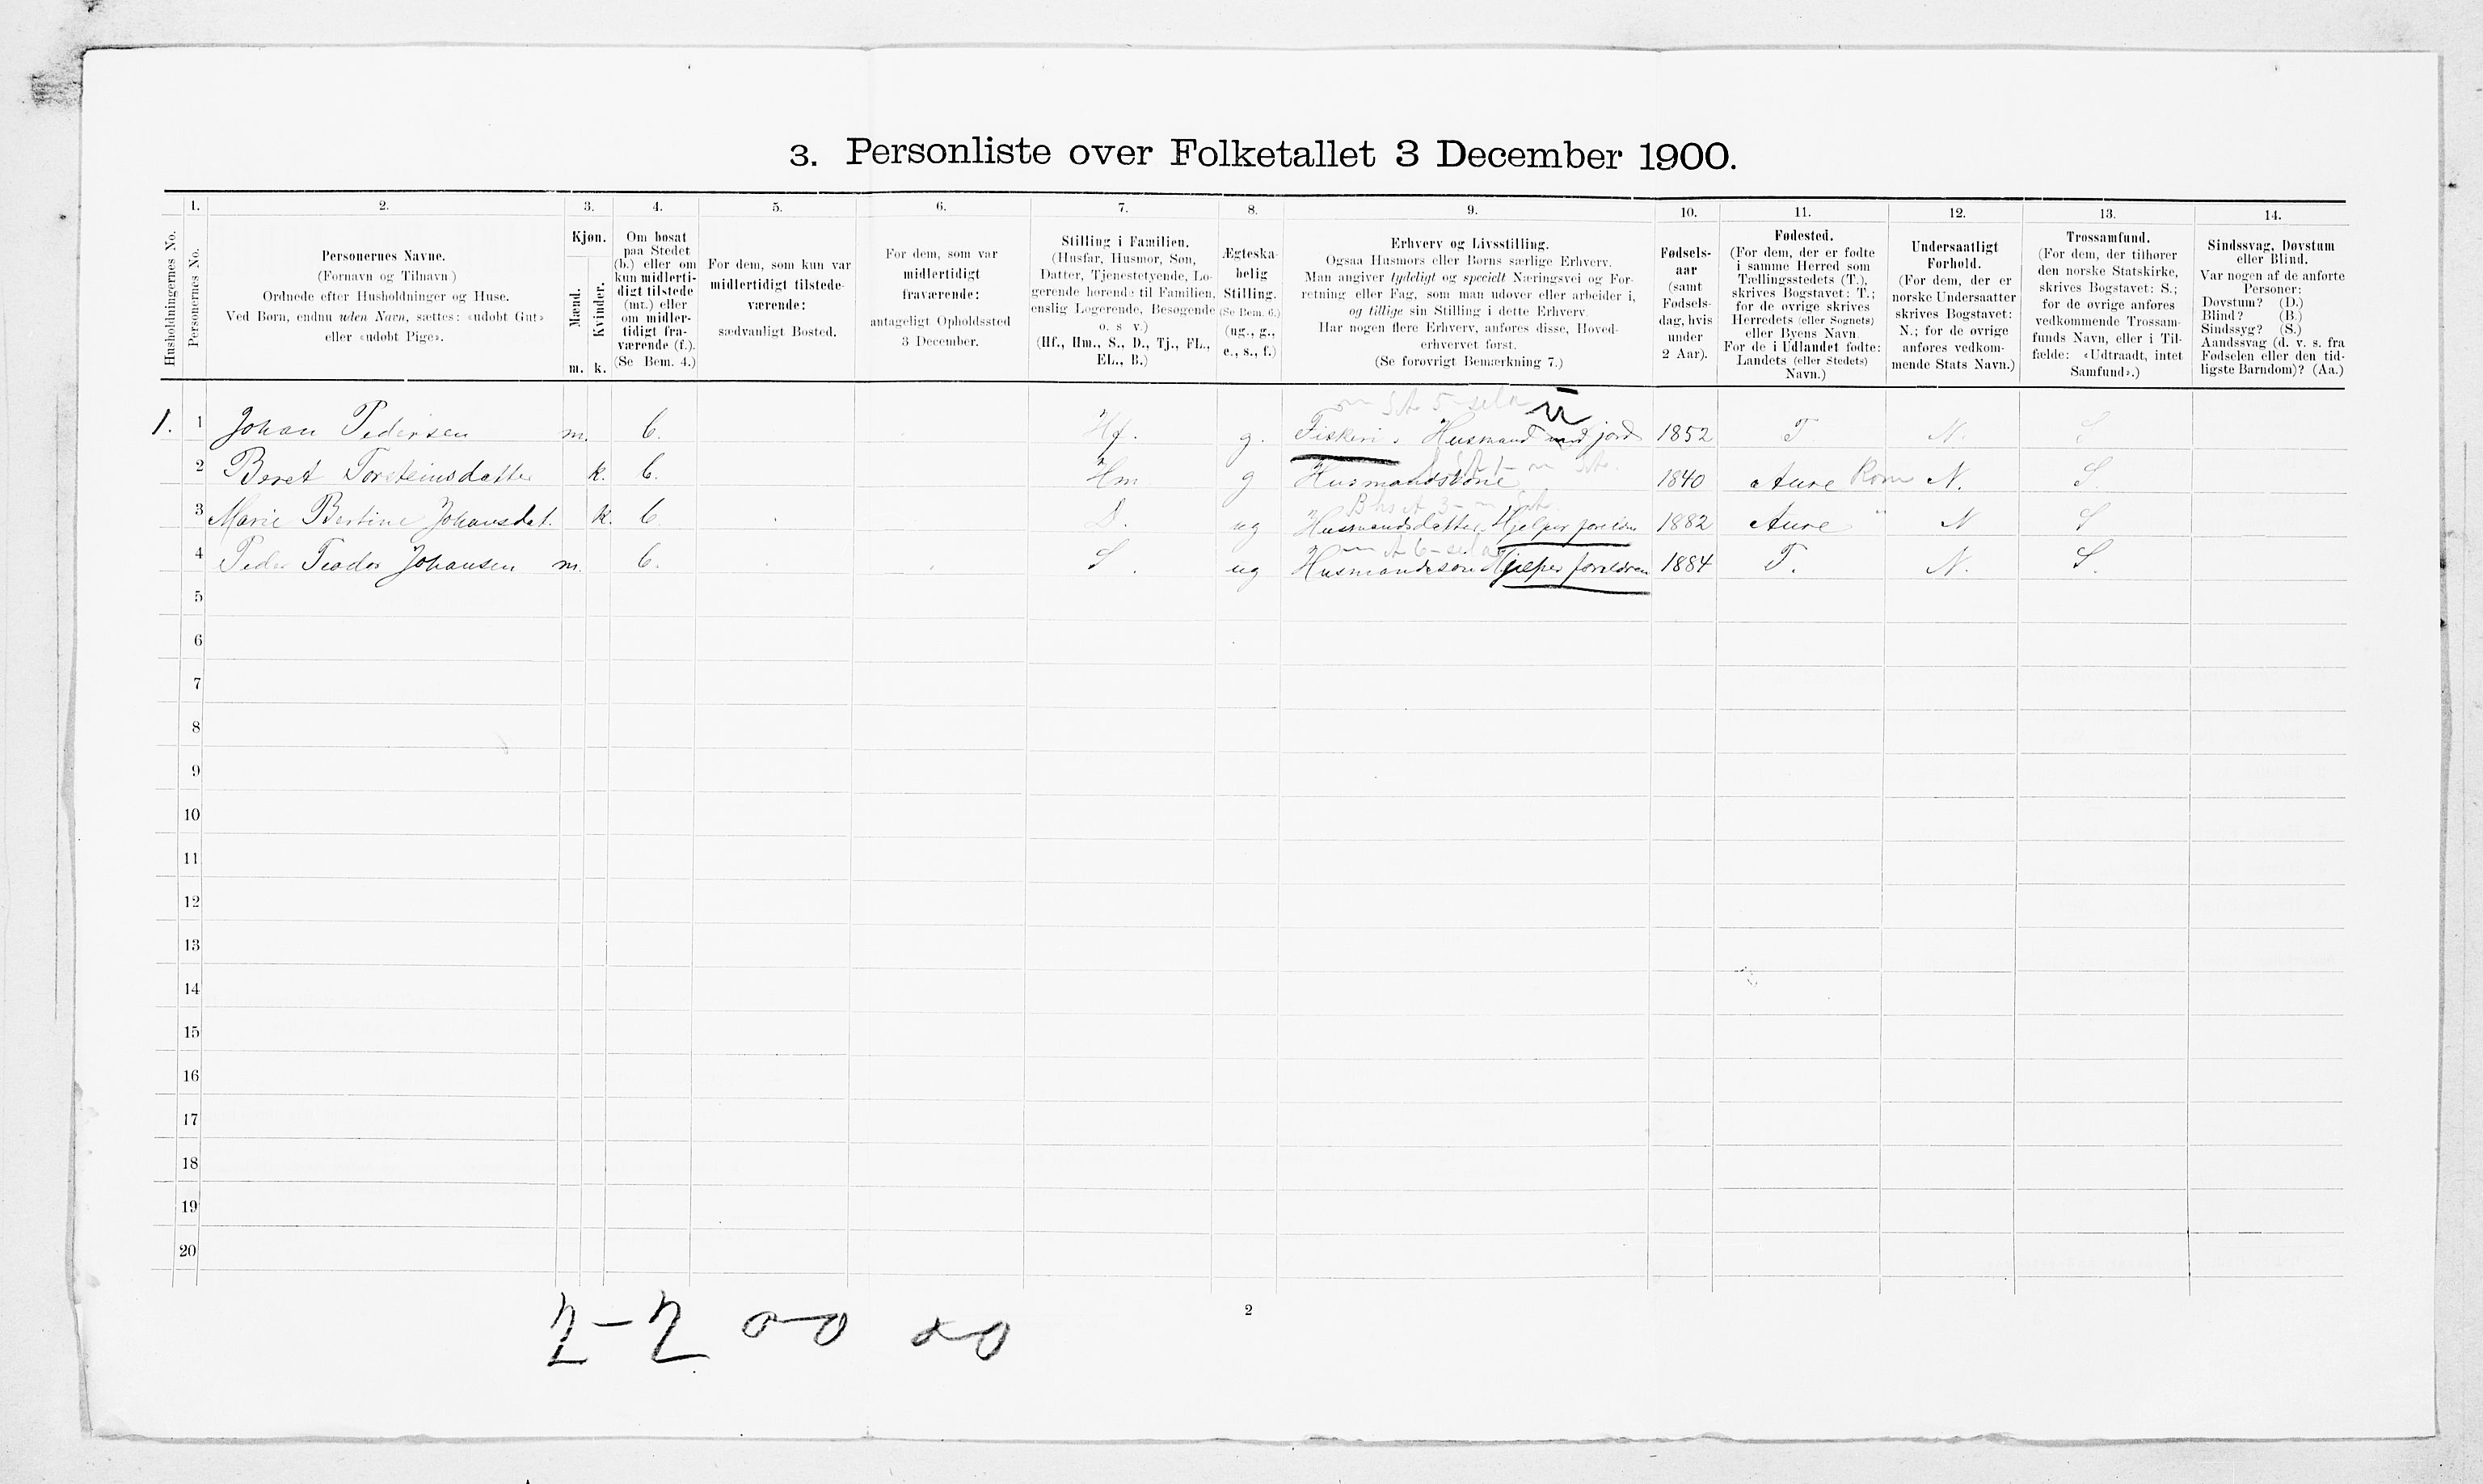 3. Personliste over Folketallet 3 December 1900.
1. 2. 3. 4. 5. 6. 7. 8. 9. 10. 11. 12. 13. 14.
Husholdningernes No.
Personernes No.
Personernes Navne.
(Fornavn og Tilnavn)
Ordnede efter Husholdninger og Huse.
Ved Børn, endnu uden Navn, sættes: «udøbt Gut»
eller «udøbt Pige».
Kjøn.
Mænd.
Kvinder.
m. k.
Om bosat
paa Stedet
(b.) eller om
kun midlerti-
digt tilstede
(mt.) eller
om midler-
tidigt fra-
værende (f.).
(Se Bem. 4.)
For dem, som kun var
midlertidigt tilstede-
værende:
sædvanligt Bosted.
For dem, som var
midlertidigt
fraværende:
antageligt Opholdssted
3 December.
Stilling i Familien.
(Husfar, Husmor, Søn,
Datter, Tjenestetyende, Lo-
gerende hørende til Familien,
enslig Logerende, Besøgende
o. s. v.)
(Hf., Hm., S., D., Tj., FL.,
EL., B.)
Ægteska-
belig
Stilling.
(Se Bem. 6.)
(ug., g.,
e., s., f.)
Erhverv og Livsstilling.
Ogsaa Husmors eller Børns særlige Erhverv.
Man angiver tydeligt og specielt Næringsvei og For-
retning eller Fag, som man udøver eller arbeider i,
og tillige sin Stilling i dette Erhverv.
Har nogen flere Erhverv, anføres disse, Hoved-
erhvervet først.
(Se forøvrigt Bemærkning 7.)
Fødsels-
aar
(samt
Fødsels-
dag, hvis
under
2 Aar).
Fødested.
(For dem, der er fødte
i samme Herred som
Tællingsstedets (T.),
skrives Bogstavet: T.;
for de øvrige skrives
Herredets (eller Sognets)
eller Byens Navn.
For de i Udlandet fødte:
Landets (eller Stedets)
Navn.)
Undersaatligt
Forhold.
(For dem, der er
norske Undersaatter
skrives Bogstavet:
N.; for de øvrige
anføres vedkom-
mende Stats Navn.)
Trossamfund.
(For dem, der tilhører
den norske Statskirke,
skrives Bogstavet: S.;
for de øvrige anføres
vedkommende Trossam-
funds Navn, eller i Til-
fælde: «Udtraadt, intet
Samfund».)
Sindssvag, Døvstum
eller Blind.
Var nogen af de anførte
Personer:
Døvstum? (D.)
Blind? (B.)
Sindssyg? (S.)
Aandssvag (d. v. s. fra
Fødselen eller den tid-
ligste Barndom)? (Aa.)
1. 1 Johan Pedersen m. b. Hf. g. Fiskeri. Husmand med jord 1852 T N. S
2 Beret Torsteinsdatter k. b. Hm g Husmandskone 1840 Aure Rom N. S.
3 Marie Bertine Johansdat. k. b. D. ug Husmandsdatter, Hjelper foreldre 1882 Aure " N S
4 Peder Teodor Johansen m. b. S. ug Husmandsson Hjelper foreldren 1884 T. N. S.
5
6
7
8
9
10
11
12
13
14
15
16
17
18
19
20
2
2-2 0-0 0-0